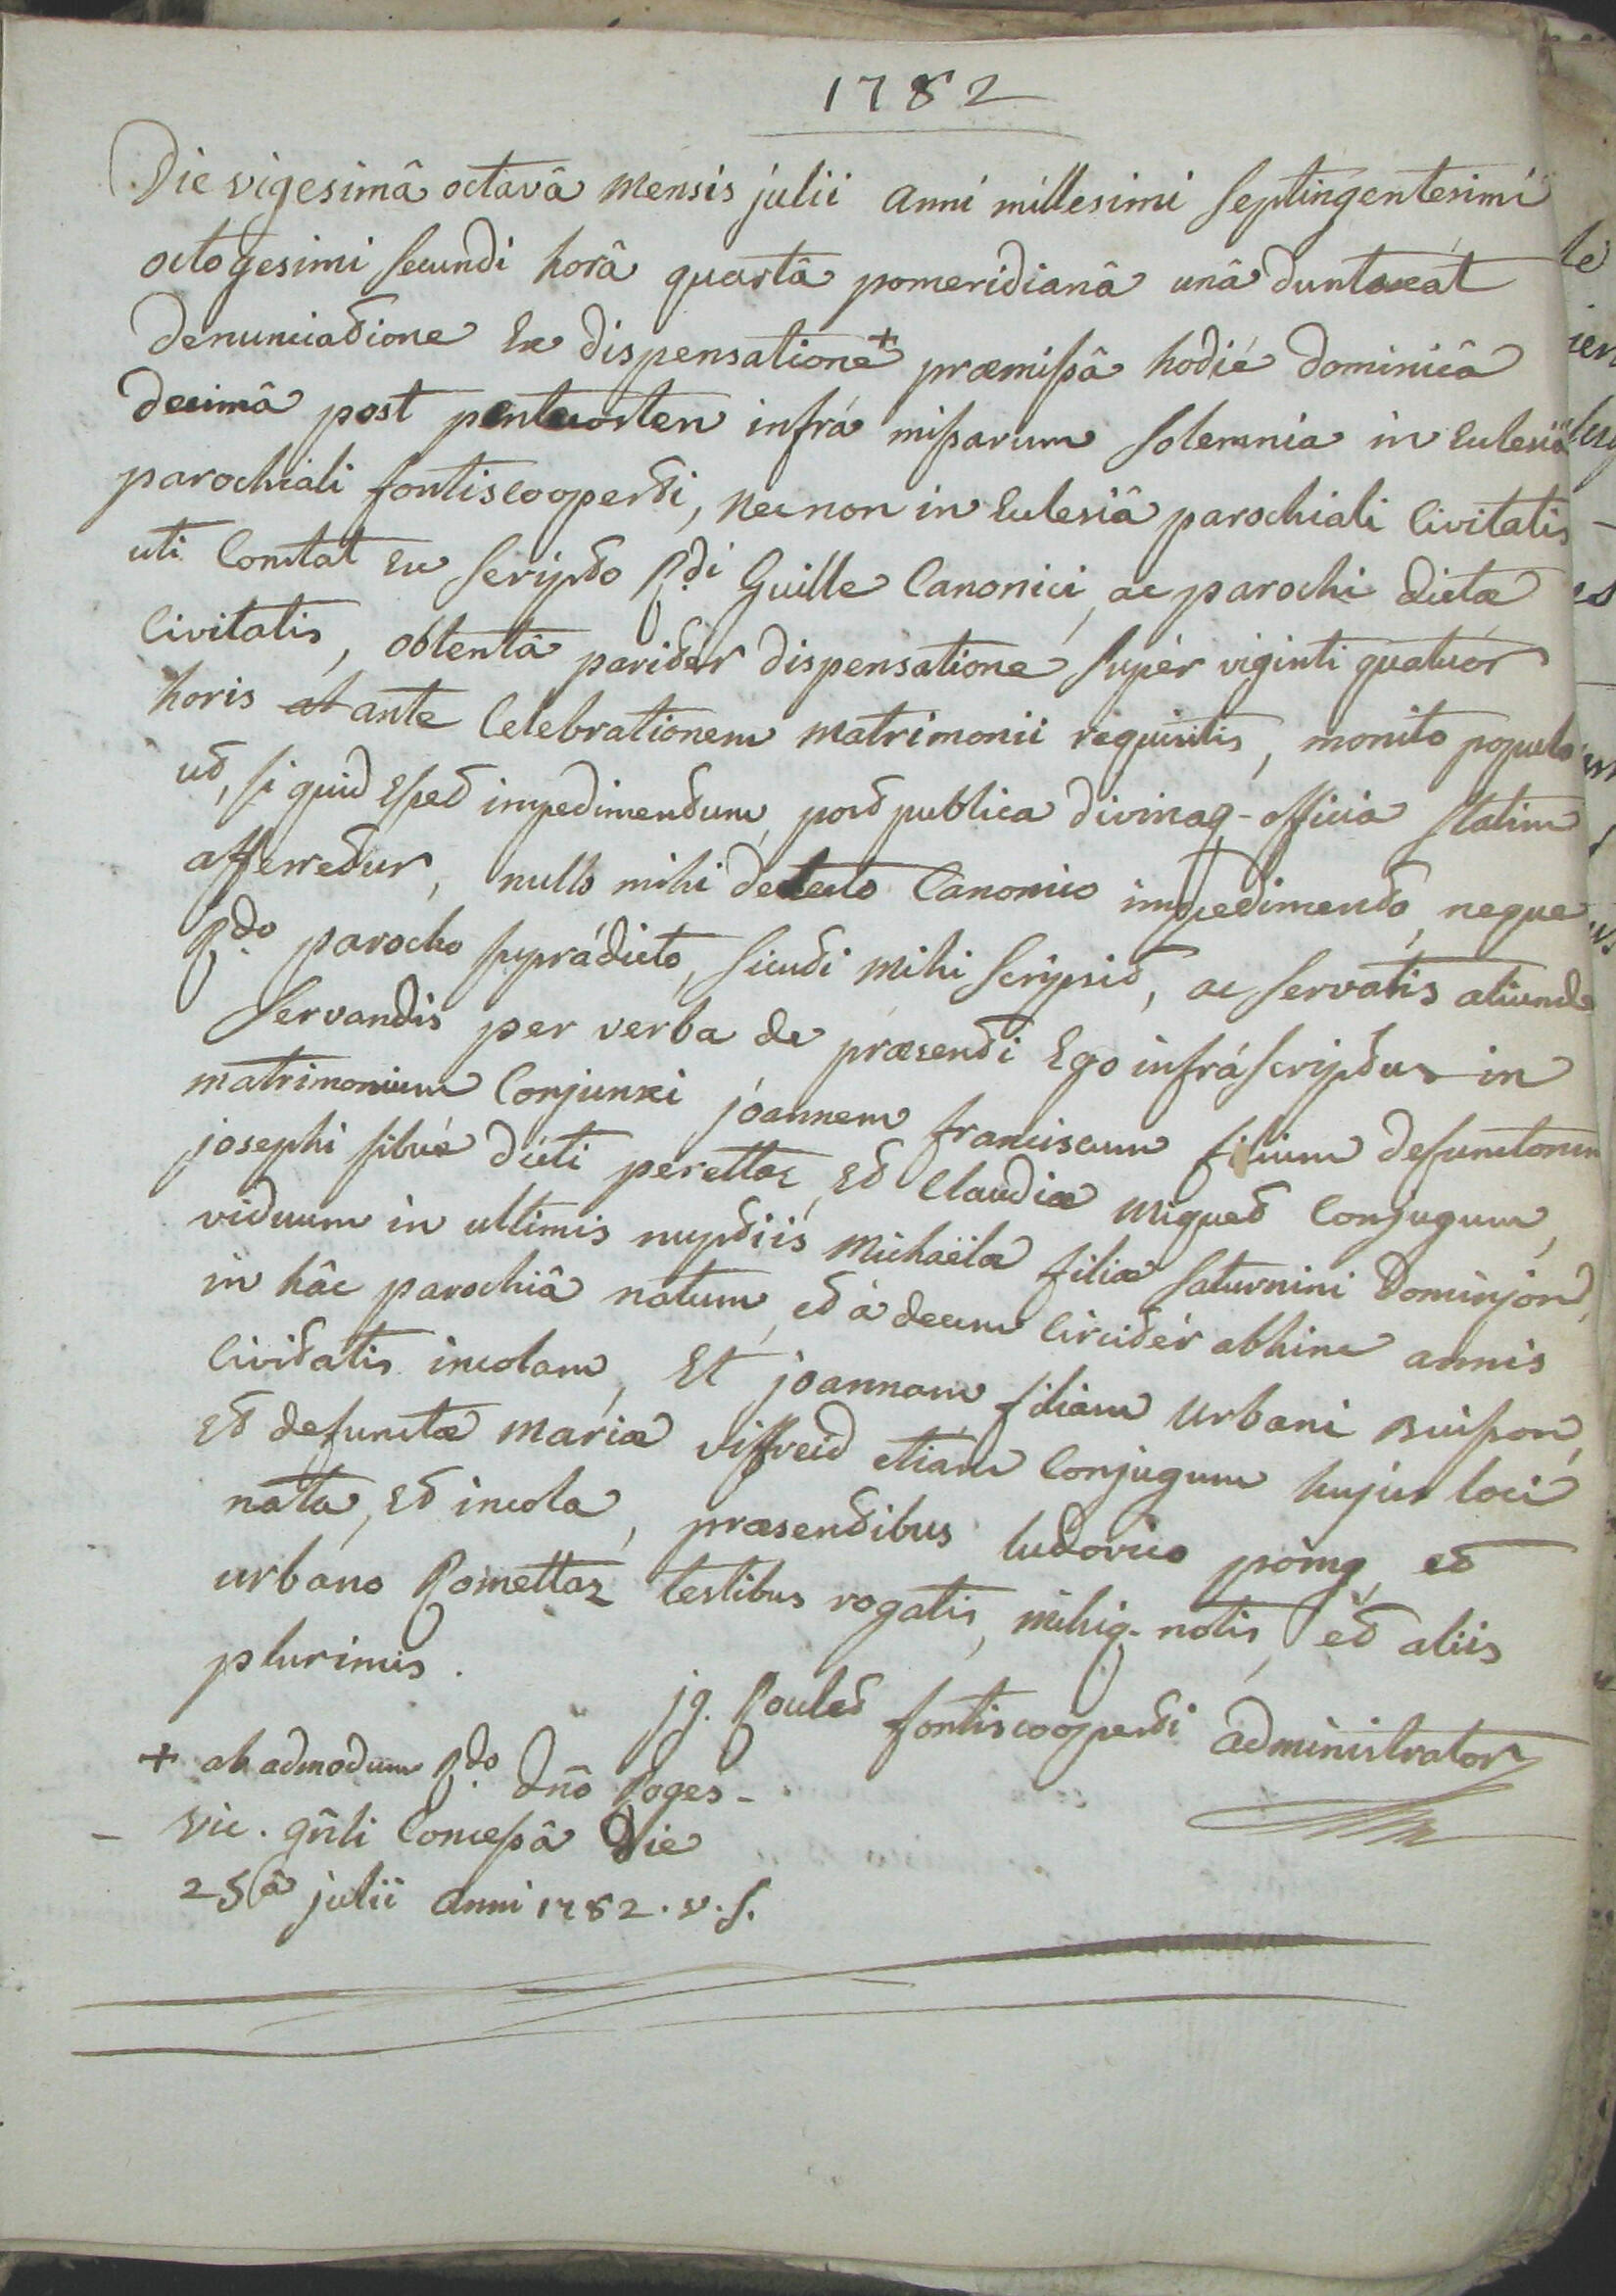 1782
Die vigesimâ octavâ mensis julii anni millesimi septingentesimi
octogesimi secundi horâ quartâ pomeridianâ unâ duntaxat
denunciatione ex dispensatione + præmissâ hodié dominicâ
decimâ post pentecosten infrá missarum solemnia in Ecclesiâ
parochiali fontiscooperti, necnon in Ecclesiâ parochiali Civitatis
uti Constat ex scripto Rdi Guille Canonici, ac parochi dictæ
Civitatis, obtentâ pariter dispensatione super viginti quatuor
horis ante Celebrationem matrimonii requisitis, monito populo
ut, si quid esset impedimentum, post publica divinaq- officia statim
afferretur, nullo mihi detecto Canonico impedimento, neque
Rdo parocho suprádicto, sicuti mihi scripsit, ac servatis aliunde
servandis per verba de præsenti Ego infráscriptus in
matrimonium Conjunxi joannem franciscum filium defunctorum
josephi silvé dicti perettaz, et Claudiæ miquet Conjugum,
viduum in ultimis nuptiis Michaëlæ filiæ saturnini Dominjon,
in hâc parochiâ natum, et à decem Circitér abhinc annis
Civitatis incolam, Et joannam filiam urbani Buisson,
et defunctæ mariæ viffreid etiam Conjugum hujus loci
nata, et incola, præsentibus ludovico poing, et
urbano Romettaz testibus rogatis, mihiq- notis, et aliis
plurimis.
jg. Roulet fontiscooperti administrator
+ ab admodum Rdo Dnō Roges-
- vic. gñli Concessâ Die
25â julii anni 1782. v. s.